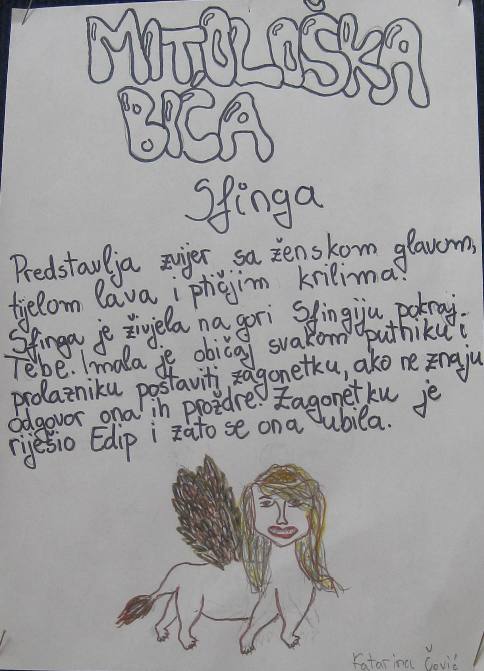 MITOLOŠKA
BIĆA
Sfinga
Predstavlja zvijer sa ženskom glavom,
tijelom lava i ptičjim krilima.
Sfinga je živjela na gori Sfingiju pokraj
Tebe. Imala je običaj svakom putniku i
prolazniku postaviti zagonetku, ako ne znaju
odgovor ona ih proždre. Zagonetku je
riješio Edip i zato se ona ubila.
Katarina Čović